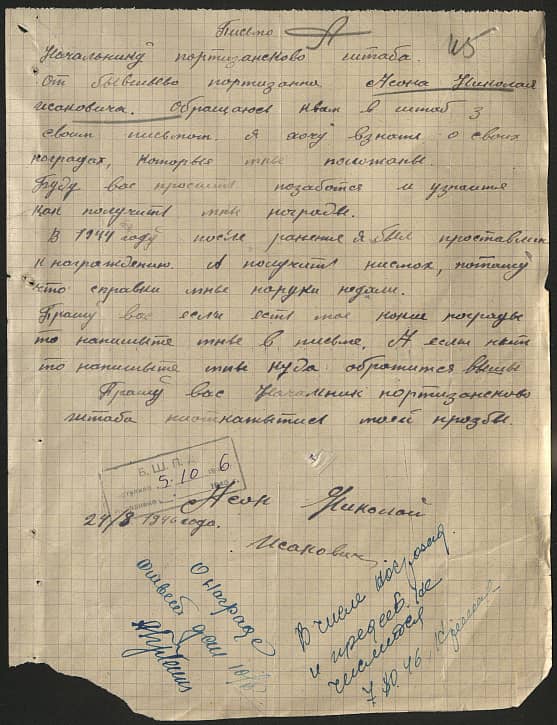 Письмо
45
Начальнику портизансково штаба.
от бывшево портизанна Асона Николая
исановича. Обращаюсь квам в штаб з
своим письмом я хочу взнать о своих
наградах, которые мне положаны
Буду вас просить позаботся и узнайте
как получить мне награды.
В 1944 году после ранения я был проставлен
к награждению. А получить нисмох, потаму
что справки мне наруки недали.
Прашу вас если есть мое какие награды
то напишыте мне в письме, А если нять
то напишыте мне куда обротится вышы
Прашу вас Начальник портизансково
штаба ниоткажытись моей прозбы.
Б.Ш.П.
5.10 6
Асон Николай
24/8 1946 года.
Исанович
О награде
В числе награжд
и предст. не
числится
7.X.46.